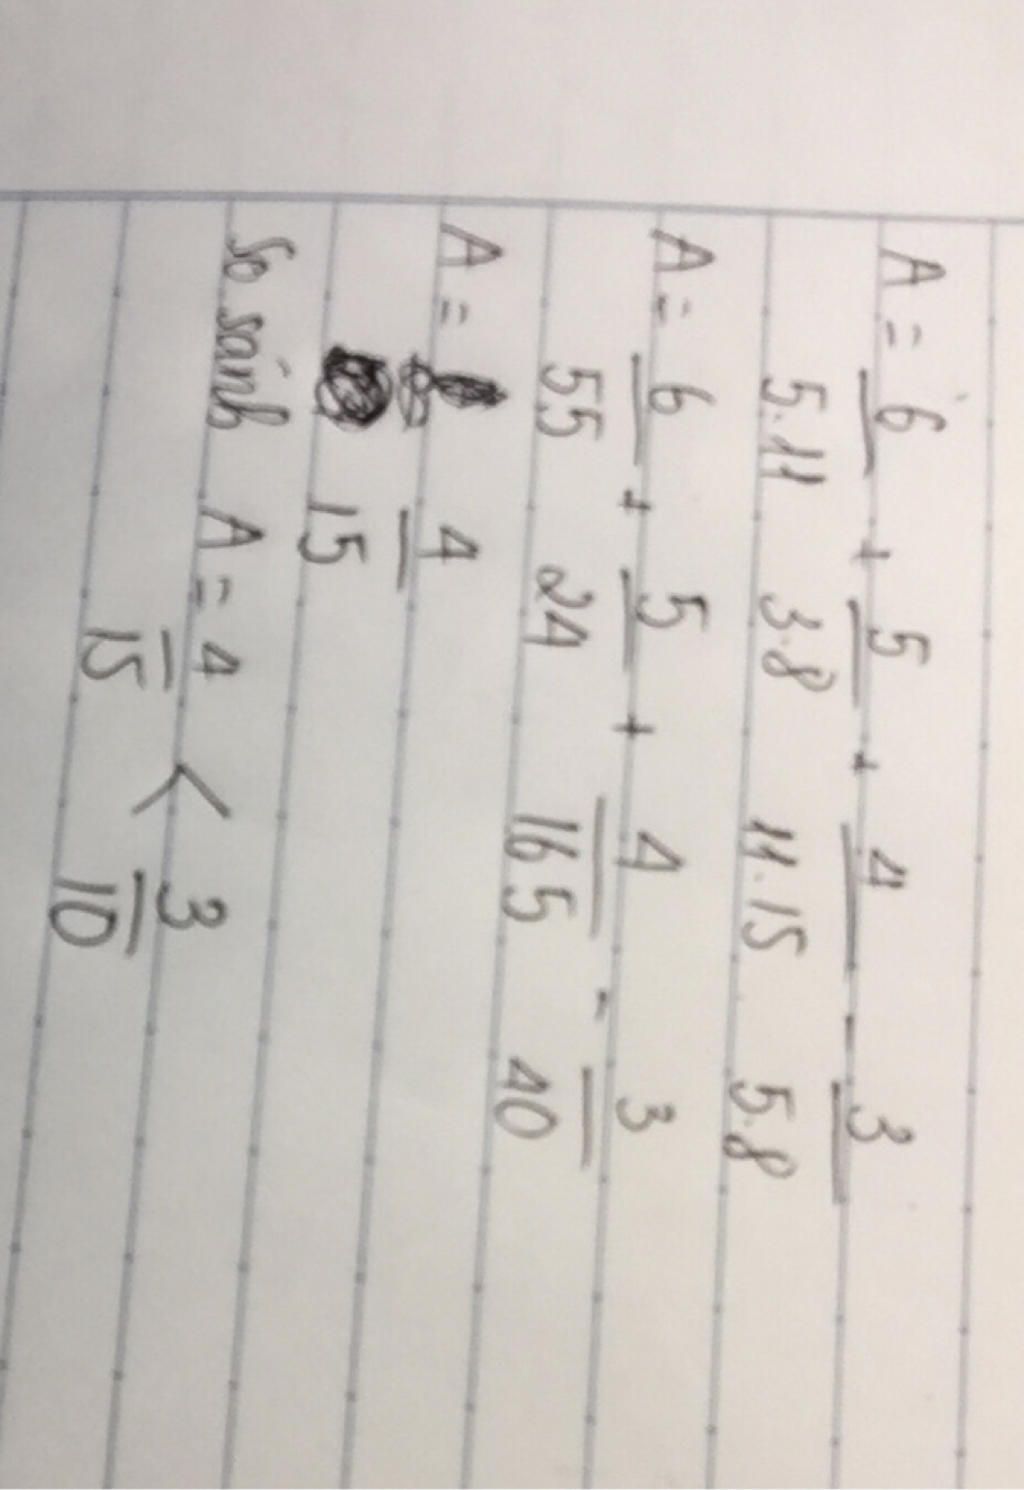 A = 6/5.11 + 5/3.8 + 4/11.15 - 3/5.8
A = 6/55 + 5/24 + 4/165 - 3/40
A = 4/15
So sánh A = 4/15 < 3/10